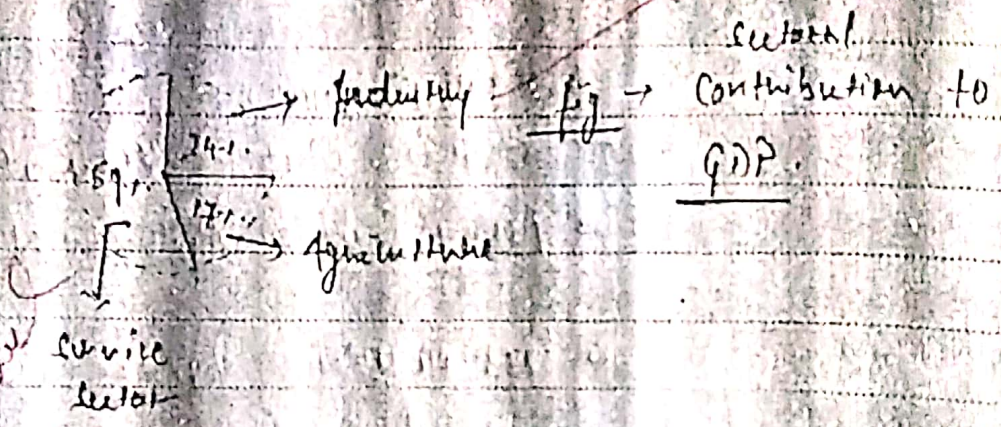 Sectoral
Industry Fig → Contribution to
24%
59%
GDP.
17%
→ Agriculture
Service
Sector